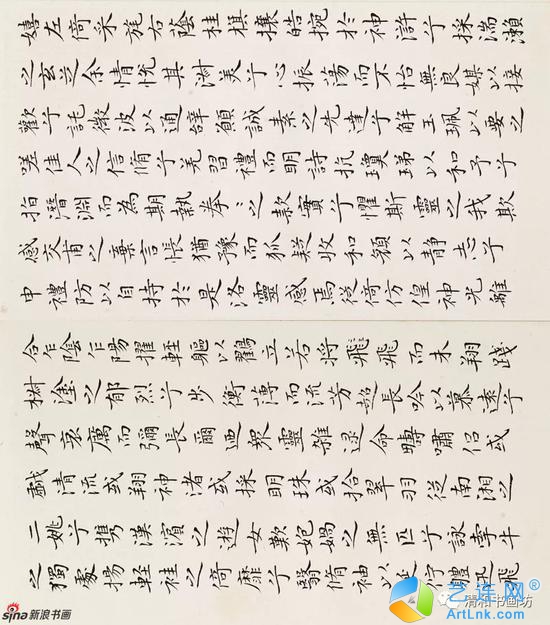 嬉左倚采旄右蔭桂棋攘皓捥於神滸兮採湍瀨
之玄芝余情悅其淑美兮心振蕩而不怡無良媒以接
歡兮託微波以通辭願誠素之先達兮解玉珮以要之
嗟佳人之信脩兮羌習禮而明詩抗瓊珶以和予兮
指潛淵而為期執拳〻之款實兮懼斯靈之我欺
感交甫之棄言悵猶豫而狐疑收和顏以靜志兮
申禮防以自持於是洛靈感焉徙倚仿偟神光離
合乍陰乍陽擢輕軀以鶴立若將飛飛而未翔踐
椒塗之郁烈兮步衡薄而流芳超長吟以慕遠兮
聲哀厲而彌長爾迺眾靈雜遝命疇嘯侶或
戲清流或翔神渚或採明珠或拾翠羽從南湘之
二姚兮攜漢濱之遊女歎妃媧之無匹兮詠牽牛
之獨處揚輕袿之倚靡兮翳脩袖以延佇體迅飛
sina新浪书画
清和书画坊
艺连网
ArtLink.com